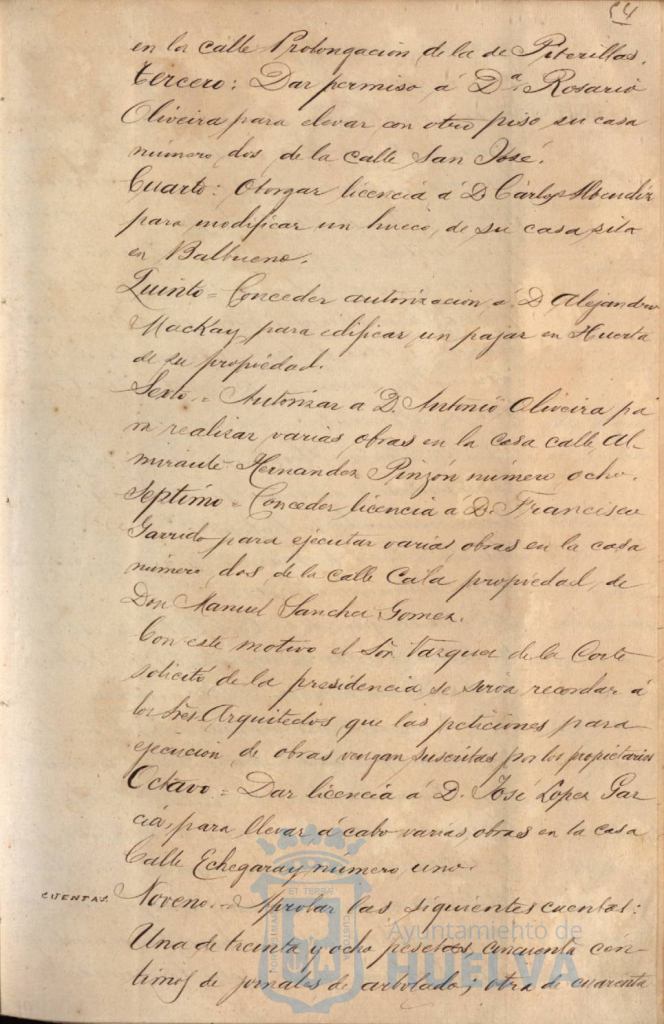 54
en la calle Prolongación de la de Piterillas.
Tercero: Dar permiso á Dª Rosario
Oliveira para elevar con otro piso su casa
número dos de la calle San José.
Cuarto: Otorgar licencia á D. Cárlos
para modificar un hueco, de su casa sita
en Balbueno.
Quinto = Conceder autorización á D. Alejandro
Mackay, para edificar un pajar en Huerta
de su propiedad.
Sexto = Autorizar á D. Antonio Oliveira pa
ra realizar varias obras en la casa calle Al-
mirante Hernandez Pinzón número ocho.
Septimo = Conceder licencia á D. Francisco
Garrido para ejecutar varias obras en la casa
número dos de la calle Cala propiedad de
Don Manuel Sancha Gomez.
Con este motivo el Sor Vazquez de la Corte
solicitó de la presidencia se sirva recordar á
los Sres. Arquitectos que las peticiones para
ejecucion de obras vengan suscritas por los propietarios
Octavo = Dar licencia á D. José Lopez Gar-
cia, para llevar á cabo varias obras en la casa
Calle Echegaray número uno.
CUENTAS. Noveno. = Aprobar las siguientes cuentas:
Una de treinta y ocho pesetas, cincuenta cén-
timos de jornales de arbolado; otra de cuarenta
Ayuntamiento de
HUELVA